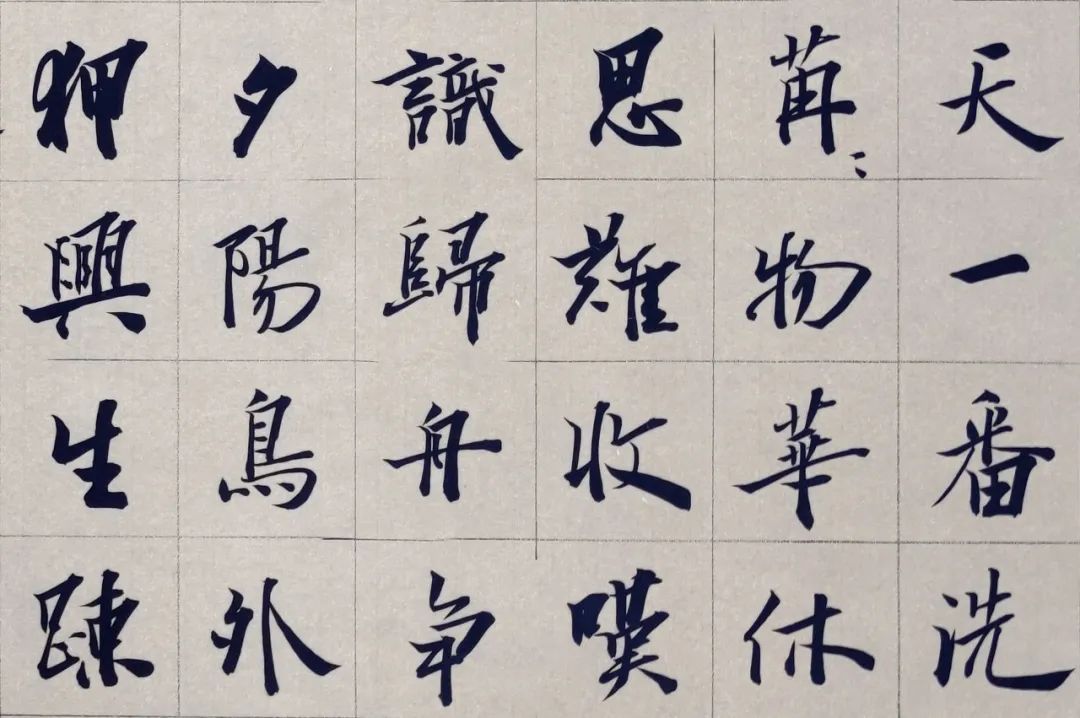 天一番洗
苒〻物華休
思難收嘆
識歸舟争
夕陽鳥外
狎興生踈